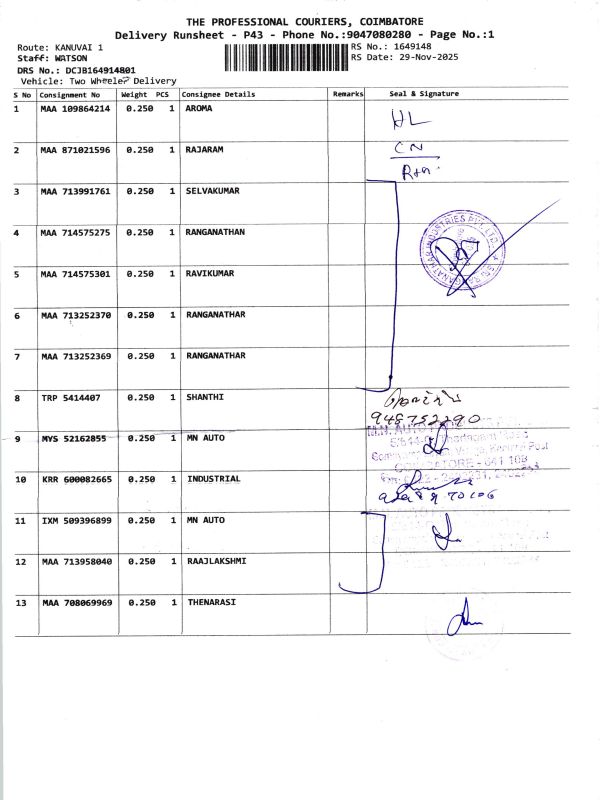 THE PROFESSIONAL COURIERS, COIMBATORE
Delivery Runsheet - P43 - Phone No.:9047080280 - Page No.:1
Route: KANUVAI 1 RS No.: 1649148
Staff: WATSON RS Date: 29-Nov-2025
DRS No.: DCJB164914801
Vehicle: Two Wheeler Delivery
S No Consignment No Weight PCS Consignee Details Remarks Seal & Signature
1 MAA 109864214 0.250 1 AROMA
2 MAA 871021596 0.250 1 RAJARAM CN
3 MAA 713991761 0.250 1 SELVAKUMAR
4 MAA 714575275 0.250 1 RANGANATHAN
5 MAA 714575301 0.250 1 RAVIKUMAR
6 MAA 713252370 0.250 1 RANGANATHAR
7 MAA 713252369 0.250 1 RANGANATHAR
8 TRP 5414407 0.250 1 SHANTHI
9 MYS 52162855 0.250 1 MN AUTO
10 KRR 600082665 0.250 1 INDUSTRIAL
11 IXM 509396899 0.250 1 MN AUTO
12 MAA 713958040 0.250 1 RAAJLAKSHMI
13 MAA 708069969 0.250 1 THENARASI